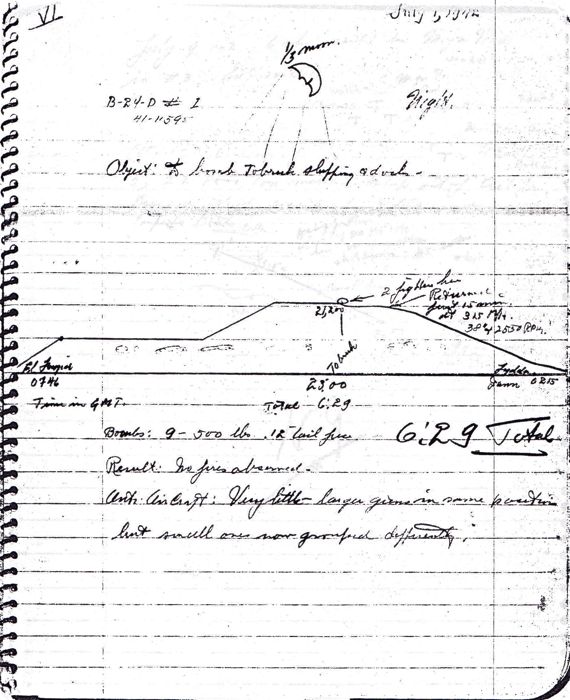 VI
July 1, 1942
1/3 moon.
B-24-D # 1
41-11595
Night.
Object: To bomb Tobruk shipping & docks -
2 fighters here
Returned
first 15 min.
at 315 M/h
38" 2550 RPM.
21,200
Tobruk
El Fayid
0746
2300
Lydda
0215
Time in GMT
Total 6:29
Bombs: 9 - 500 lbs .12 tail fuse
6:29 Total
Result: No fires observed -
Anti-Aircraft: Very little - larger guns in same position
but small ones now grouped differently.